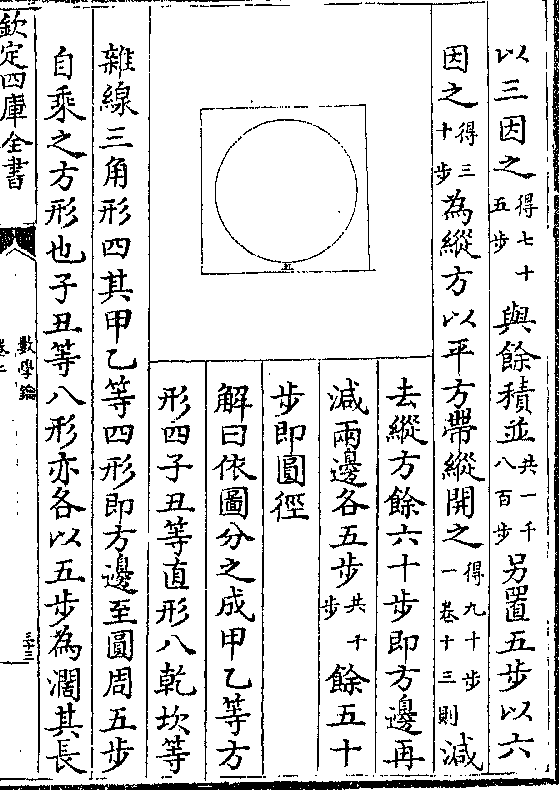 以三因之得七十五步與餘積並共一千八百步另置五步以六
因之得三十步為縱方以平方帶縱開之得九十步一卷十三則減
去縱方餘六十步即方邊再
減兩邊各五步共十步餘五十
步即圓徑
解曰依圖分之成甲乙等方
形四子丑等直形八乾坎等
雜線三角形四其甲乙等四形即方邊至圓周五步
自乘之方形也子丑等八形亦各以五步為濶其長
欽定四庫全書
數學鑰